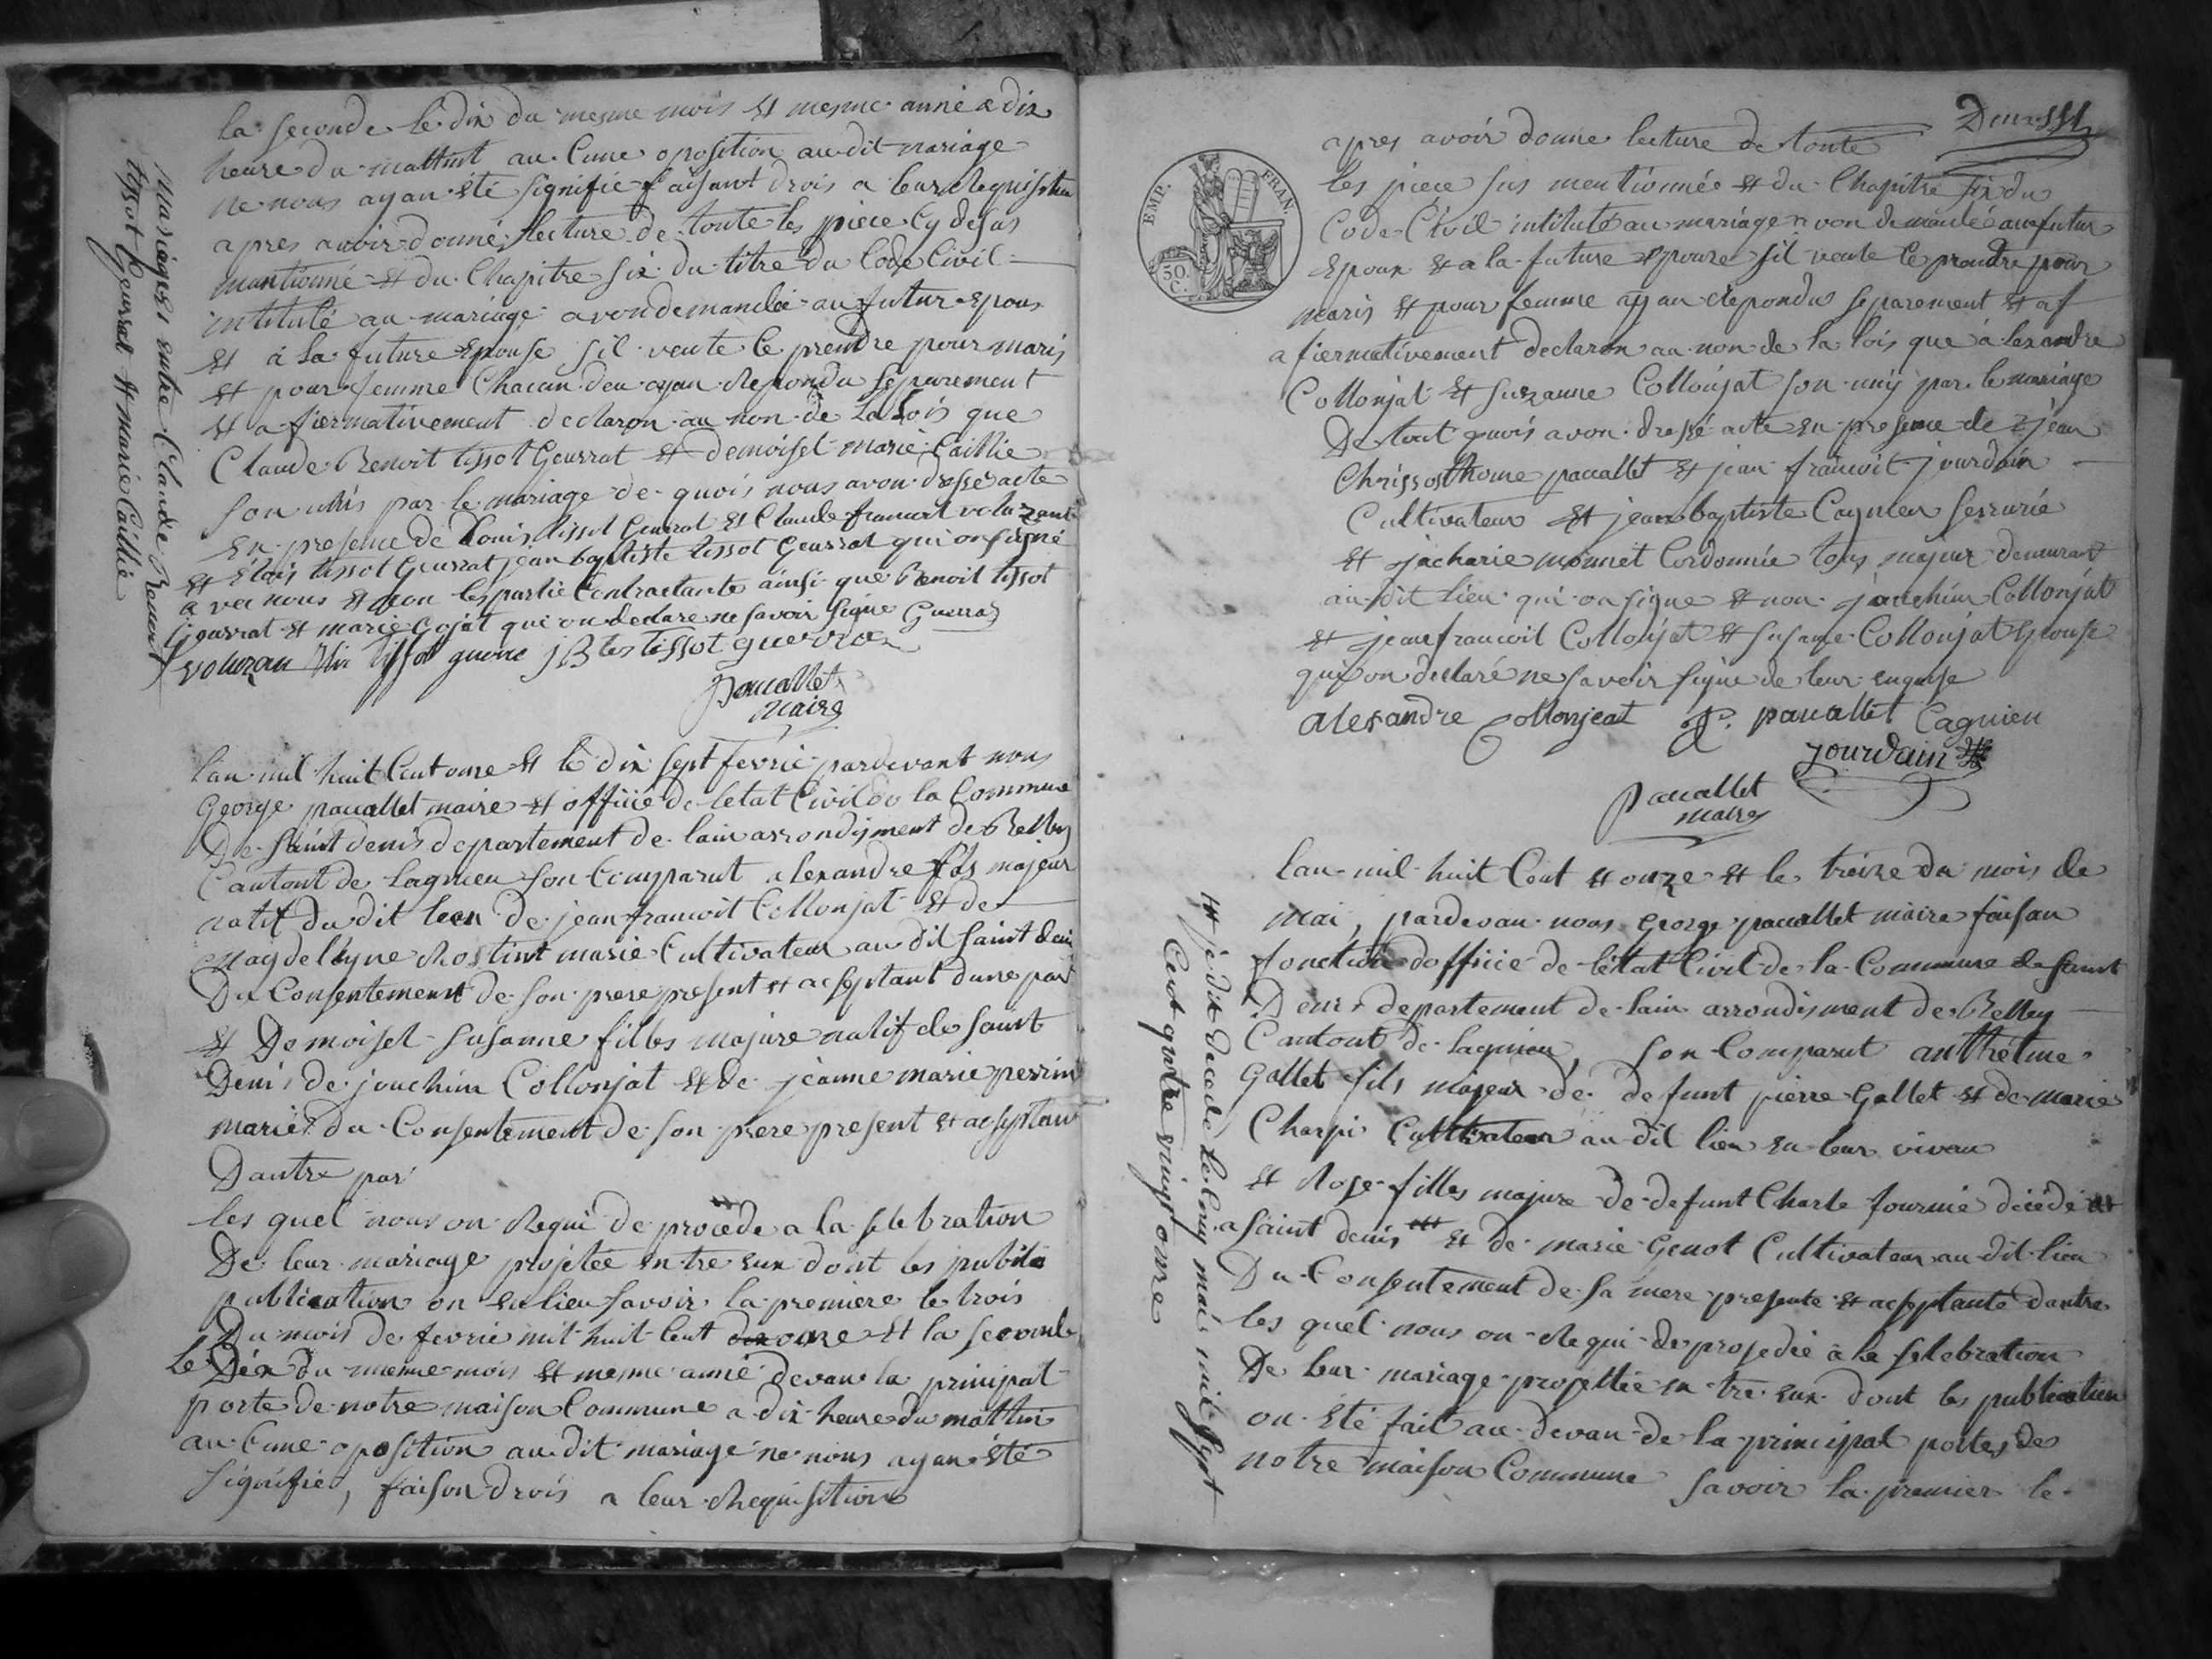 la seconde le dix du mesme mois et mesme anné a dix
heure du mattint au Cune oposition audit mariage
ne nous ayan été signifie faisant drois a leur Requisition
apres avoir donné lecture de toute les piece Cy desus
mantionné et du Chapitre six du titre du Code Civil
intitulé au mariage avon demandée au futur Epous
et á la future Epouse sil veute le prendre pour maris
et pour femme Chacun deu ayan Repondu séparement
et afiermativement declaron au non de La Lois que
Claude Benoit tissot Geurrat et demoisel marie Caillie
son unis par le mariage de quois nous avon dressé acte
En presence de Louis tissot Geurrat et Claude francoit voluzant
et Elois tissot Geurrat jean baptiste tissot Geurrat qui on signé
avec nous et non les partie Contractante ainsi que Benoit tissot
Geurrat et marie Gojat qui on declare ne savoir signe Guerra
voluzan tissot guerre j B tes tissot guerra
paucallet
maire
Mariages entre Claude Benoit
tissot Geurrat et marie Caillie
Lan mil huit Cent onse et le dix sept fevrié pardevant nous
George paucallet maire et officié de letat Civil de la Commune
De Saint denis departement de lain arrondisment de Belley
Cantont de Lagnieu son Comparut alexandre fils majeur
natif du dit lieu de jean francoit Collonjat et de
Magdeleyne Rostint marie Cultivateur au dit saint denis
Du Consentement de son pere present et acseptant dune par
et Demoisel Susanne filles majure natif de saint
Denis de jouchim Collonjat et de jeanne marie perrin
marié du Consentement de son pere present et acseptant
Dautre par
les quel nous on Requi de procede a la selebration
De leur mariage projetée entre eux dont les public
publication on eu lieu savoir la premiere le trois
Du mois de fevrie mil huit Cent onse et la seconde
le Dix du mesme mois et mesme annié devan la prinipal
porte de notre maison Commune a dix heure du mattin
au Cune oposition audit mariage ne nous ayan été
signifié, faison drois a leur Requisition
Deux
EMP. FRAN.
50.
C.
apres avoir donne lecture de toute
les piece sus mentionnée et du Chapitre six du
Code Civil intitulé au mariage avon demandée au futur
Epoux et a la future Epouze sil veute le prendre pour
maris et pour femme ayan Repondu separement et af
afiermativement declaron au non de la lois que alexandre
Collonjat et Suzanne Collonjat son uniy par le mariage
De tout quois avon dressé acte en presence de jean
Chrissosthome paucallet et jean francoit jourdain
Cultivateur et jean baptiste Cagnieu serrurié
et jacharie monnet Cordonnié tous majeur demeurant
au dit lieu qui on signe et non jouchim Collonjat
et jean francoit Collonjat et Susane Collonjat Epouse
qui on declaré ne savoir signe de leur enquise
alexandre Collonjeat C. paucallet Cagnieu
jourdain
paucallet
maire
Lan mil huit Cent et onze et le treize du mois de
mai, pardevan nous George paucallet maire faisan
fonction dofficié de létat Civil de la Commune de saint
Denis departement de lain arrondisment de Belley
Cantont de lagnieu, son Comparut anthelme
Gallet fils majeur de defunt pierre Gallet et de marie
Charpi Cultivateur au dit lieu en leur vivan
et Rose filles majure de defunt Charle fournié décédé
a saint denis et de marie Genot Cultivateur au dit lieu
Du Consentement de sa mere presente et acseptante dautre
les quel nous on Requi de prosedée a la selebration
De leur mariage projettée entre eux dont les publication
on été fait au devan de la principal portes de
notre maison Commune savoir la premier le
je dit decede le Cinq mai mil sept
Cent quatre vingt onze